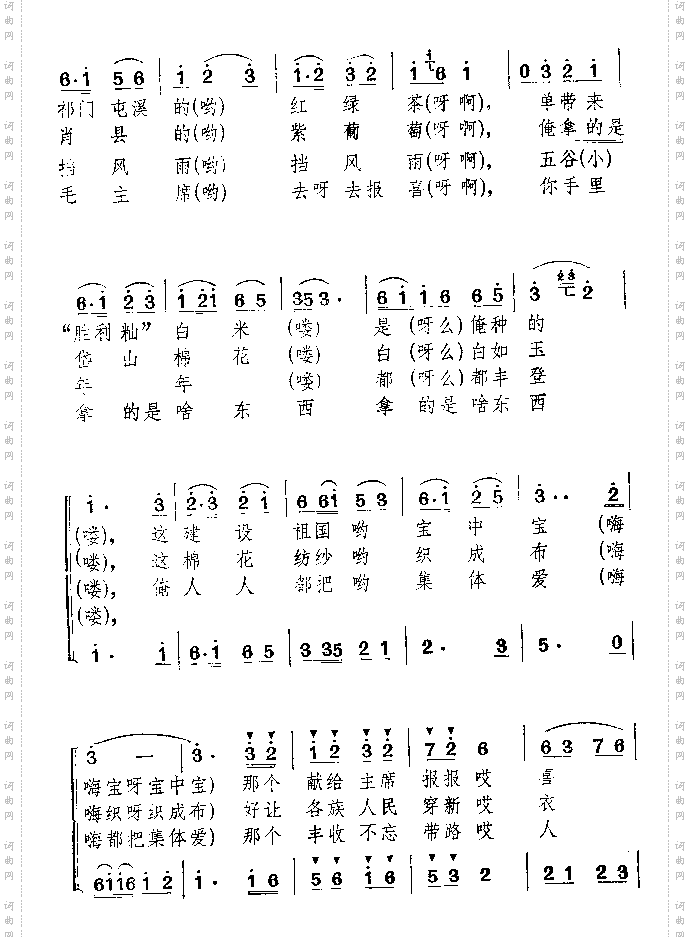 6·1 56 | 1 2 3 | 1·2 32 | 1 6 1 | 0 3 2 1
祁门 屯溪 的(哟) 红 绿 茶(呀 啊), 单带来
肖 县 的(哟) 紫 葡 萄(呀 啊), 俺拿的是
挡 风 雨(哟) 挡 风 雨(呀 啊), 五谷(小)
毛 主 席(哟) 去呀去报 喜(呀 啊), 你手里
6·1 2 3 | 1 21 6 5 | 35 3· | 6 1 1 6 6 5 | 3 2
“胜利籼” 白 米 (喽) 是(呀么)俺种 的
岱 山 棉 花 (喽) 白(呀么)白如 玉
年 年 (喽) 都(呀么)都丰 登
拿 的是啥 东 西 拿 的是啥东西
1· 3 | 2·3 2 1 | 6 61 5 3 | 6·1 2 5 | 3·· 2
(喽), 这 建 设 祖国 哟 宝 中 宝 (嗨
(喽), 这 棉 花 纺纱 哟 织 成 布 (嗨
(喽), 俺 人 人 都把 哟 集 体 爱 (嗨
(喽),
1· 1 | 6·1 6 1 | 3 35 2 1 | 2· 3 | 5· 0
3 — | 3· 3 2 | 1 2 3 2 | 7 2 6 | 6 3 7 6
嗨宝呀宝中宝) 那个 献给 主席 报报 哎 喜
嗨织呀织成布) 好让 各族 人民 穿新 哎 衣
嗨都把集体爱) 那个 丰收 不忘 带路 哎 人
6116 1 2 | 1· 1 6 | 5 6 1 6 | 5 3 2 | 2 1 2 3
词曲网